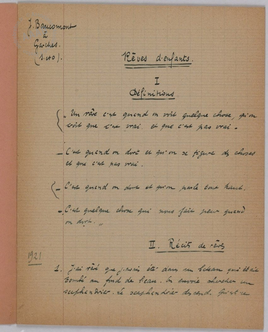 J. Beaussmont
à
Garches
Rêves d'enfants.
I
Définitions
- Un rêve c'est quand on voit quelque chose, qu'on
voit que c'est vrai et que c'est pas vrai.
- C'est quand on dort et qu'on se figure des choses
et que c'est pas vrai.
- C'est quand on dort et qu'on parle tout haut.
- C'est quelque chose qui nous fait peur quand
on dort.
II Récits de rêves
1921
1. J'ai rêvé que j'avais été dans un bateau qui était
tombé au fond de l'eau.